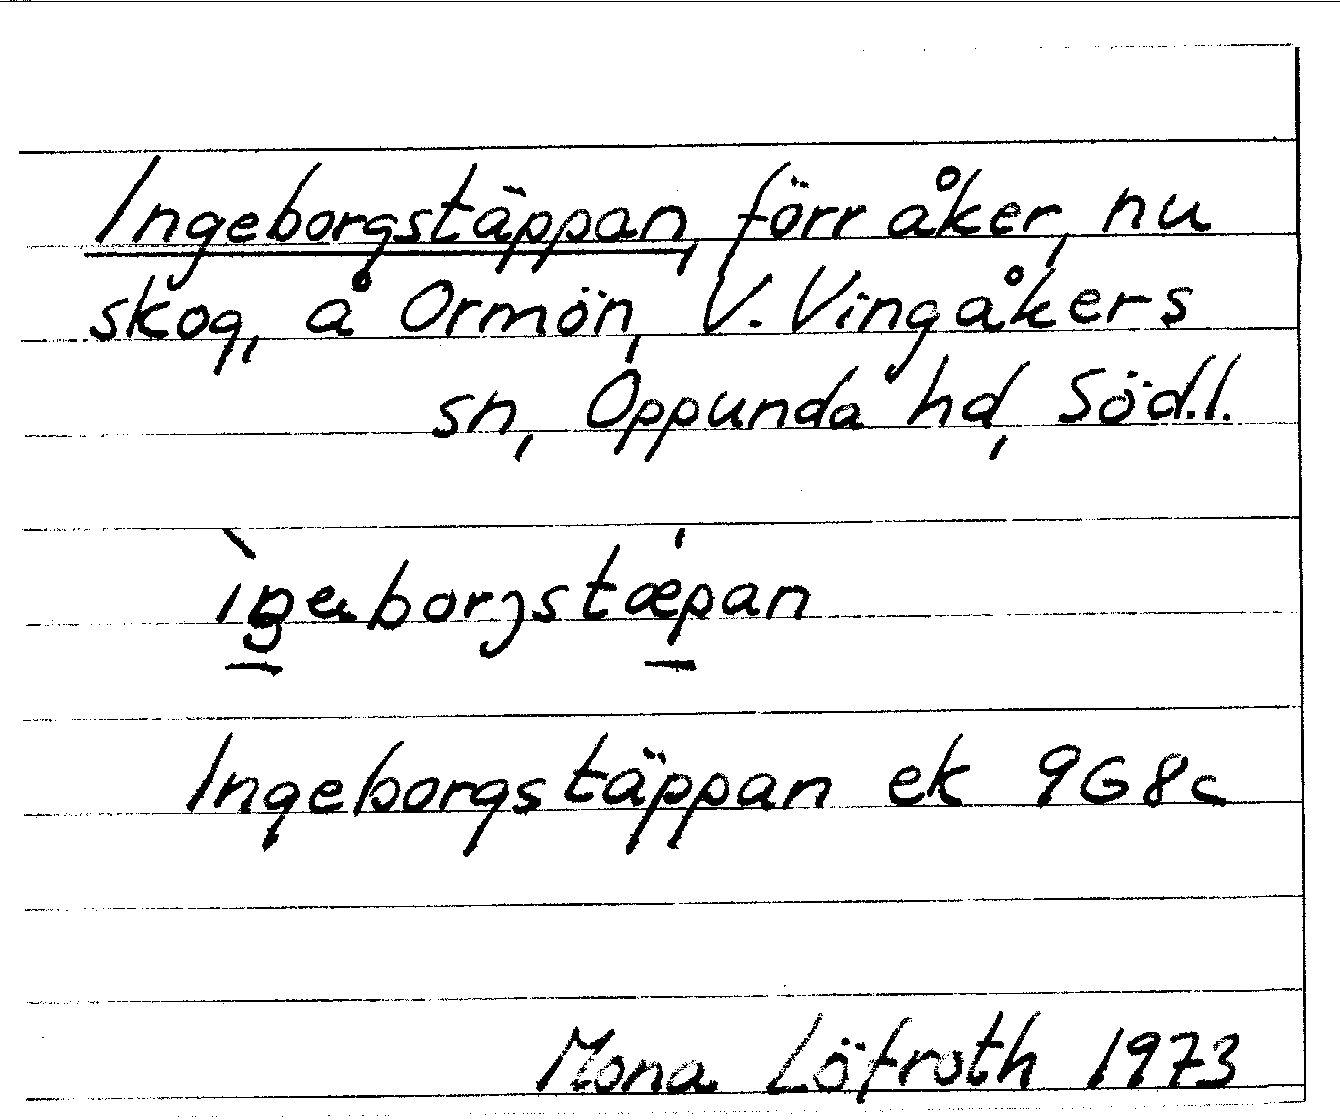 Ingeborgstäppan, förr åker, nu
skog, å Ormön, V. Vingåkers
sn, Oppunda hd, Södl.
Ingeborgstäppan ek 9G8c
Mona Löfroth 1973